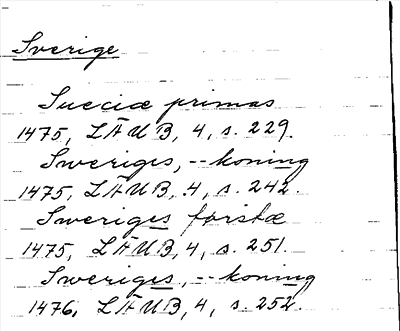 Sverige
Sueciæ primas
1475, LÄUB, 4, s. 229.
Sweriges, -- koning
1475, LÄUB, 4, s. 242.
Sweriges førstæ
1475, LÄUB, 4, s. 251.
Sweriges, -- koning
1476, LÄUB, 4, s. 252.